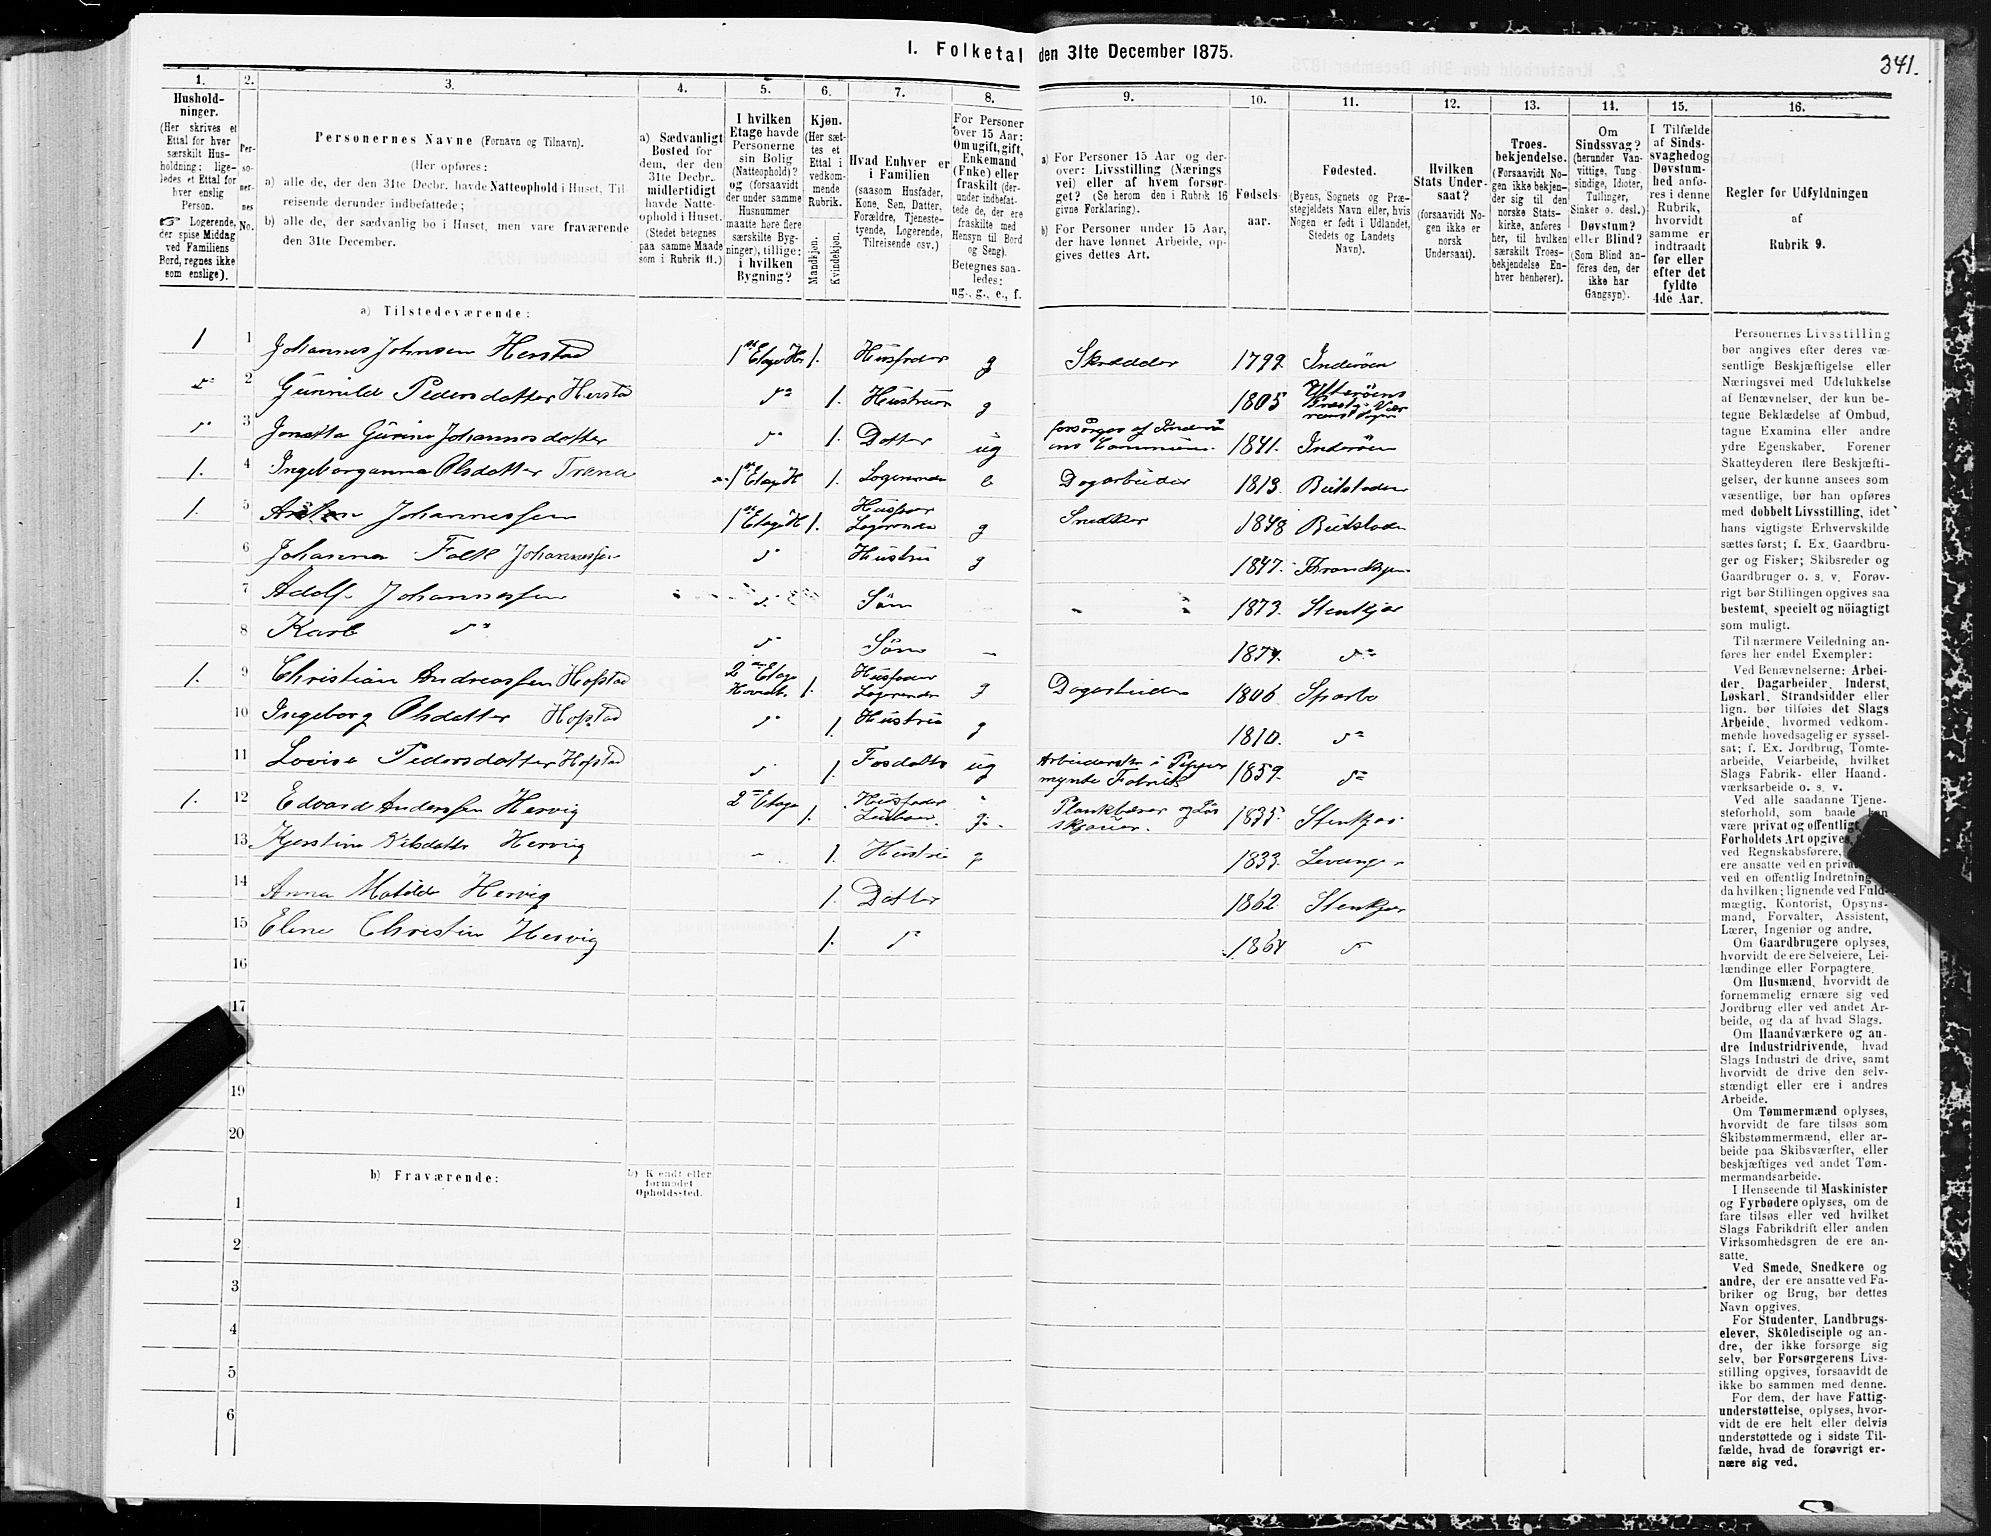 I. Folketal den 31te December 1875.
341.
1.
Hushold-
ninger.
(Her skrives et
Ettal for hver
særskilt Hus-
holdning; lige-
ledes et Ettal for
hver enslig
Person.
☞ Logerende,
der spise Middag
ved Familiens
Bord, regnes ikke
som enslige).
2.
Per-
so-
ner-
nes
No.
3.
Personernes Navne (Fornavn og Tilnavn).
(Her opføres:
a) alle de, der den 31te Decbr. havde Natteophold i Huset, Til-
reisende derunder indbefattede;
b) alle de, der sædvanlig bo i Huset, men vare fraværende
den 31te December.
4.
a) Sædvanligt
Bosted for
dem, der den
31te Decbr.
midlertidigt
havde Natte-
ophold i Huset.
(Stedet betegnes
paa samme Maade
som i Rubrik 11.)
5.
I hvilken
Etage havde
Personerne
sin Bolig
(Natteophold)?
og (forsaavidt
der under samme
Husnummer
maatte høre flere
særskilte Byg-
ninger), tillige:
i hvilken
Bygning?
6.
Kjøn.
(Her sæt-
tes et
Ettal i
vedkom-
mende
Rubrik.
Mandkjøn.
Kvindekjøn.
7.
Hvad Enhver er
i Familien
(saasom Husfader,
Kone, Søn, Datter,
Forældre, Tjeneste-
tyende, Logerende,
Tilreisende osv.)
8.
For Personer
over 15 Aar:
Om ugift, gift,
Enkemand
(Enke) eller
fraskilt (der-
under indbefat-
tede de, der ere
fraskilte med
Hensyn til Bord
og Seng).
Betegnes saa-
ledes:
ug., g., e., f.
9.
a) For Personer 15 Aar og der-
over: Livsstilling (Nærings
vei) eller af hvem forsør-
get? (Se herom den i Rubrik 16
givne Forklaring).
b) For Personer under 15 Aar,
der have lønnet Arbeide, op-
gives dettes Art.
10.
Fødsels-
aar.
11.
Fødested.
(Byens, Sognets og Præ-
stegjeldets Navn eller, hvis
Nogen er født i Udlandet,
Stedets og Landets
Navn).
12.
Hvilken
Stats Under-
saat?
(forsaavidt No-
gen ikke er
norsk
Undersaat).
13.
Troes-
bekjendelse.
(Forsaavidt No-
gen ikke bekjen-
der sig til den
norske Stats-
kirke, anføres
her, til hvilken
særskilt Troes-
bekjendelse En-
hver henhører).
14.
Om
Sindssvag?
(herunder Van-
vittige, Tung
sindige, Idioter,
Tullinger,
Sinker o. desl.)
Døvstum?
eller Blind?
(Som Blind an-
føres den, der
ikke har
Gangsyn).
15.
I Tilfælde
af Sinds-
svaghed og
Døvstum-
hed anfø-
res i denne
Rubrik,
hvorvidt
samme er
indtraadt
før eller
efter det
fyldte
4de Aar.
16.
Regler for Udfyldningen
af
Rubrik 9.
a) Tilstedeværende:
1 1 Johannes Johnsen Herstad 1st Etage H. 1. Husfader g Skrædder 1799. Inderøen
2 Gunnild Pedersdatter Herstad 1. Hustrue g 1805
3 Jonetta Gurine Johannesdatter 1. Dotter ug forsørges af Inderø- 1841. Inderøen
1. 4 Ingeborganna Olsdatter Trana 1st Etage H 1. Logerende e Dagarbeider 1813. Beitstaden
1. 5 Johannessen 1st Etage H 1. Husfader Logerende g Snedker 1848 Beitstaden
6 Johanna Falk Johannessen Hustru g 1847. Throndhjem
7 Adolf Johannessen Søn 1873. Stenkjær
8 Karl Søn 1874.
1. 9 Christian Andreassen Hofstad 2den Etage 1. Husfader Logerende g Dagarbeider 1806 Sparbo
10 Ingeborg Olsdatter Hofstad 1. Hustrue g 1810.
11 Lovise Pedersdatter Hofstad 1. ug Arbeiderske i Pepper
mynte Fabrik 1859.
1. 12 Edvard Anderssen Hervig 2den Etage 1. Husfader g. 1835 Stenkjær
13 Kjerstine Nilsdatter Hervig 1. Hustru g 1833. Levanger
14 Anna Matilde Hervig 1. Datter 1862. Stenkjær
15 Eline Christin Hervig 1. 1864
16
17
19
20
b) Fraværende:
b) Kjendt eller
formodet
Opholdssted.
1
2
3
4
5
6
Personernes Livsstilling
bør angives efter deres væ-
sentlige Beskjæftigelse eller
Næringsvei med Udelukkelse
af Benævnelser, der kun be-
tegne Beklædelse af Ombud,
tagne Examina eller andre
ydre Egenskaber. Forener
Skatteyderen flere Beskjæfti-
gelser, der kunne ansees som
væsentlige, bør han opføres
med dobbelt Livsstilling, idet
hans vigtigste Erhvervskilde
sættes først; f. Ex. Gaardbru-
ger og Fisker; Skibsreder og
Gaardbruger o. s. v. Forøv-
rigt bør Stillingen opgives saa
bestemt, specielt og nöiagtigt
som muligt.
Til nærmere Veiledning an-
føres her endel Exempler:
Ved Benævnelserne: Arbei-
der, Dagarbeider, Inderst,
Løskarl, Strandsidder eller
lign. bør tilføies det Slags
Arbeide, hvormed vedkom-
mende hovedsagelig er syssel-
sat; f. Ex. Jordbrug, Tomte-
arbeide, Veiarbeide, hvilket
Slags Fabrik- eller Haand-
værksarbeide o. s. v.
Ved alle saadanne Tjene-
steforhold, som baade kan
være privat og offentlig,
Forholdets Art opgives,
ved Regnskabsførere,
ere ansatte ved en privat
ved en offentlig Indretning
da hvilken; lignende ved Fuld-
mægtig, Kontorist, Opsyns-
mand, Forvalter, Assistent,
Lærer, Ingeniør og andre.
Om Gaardbrugere oplyses,
hvorvidt de ere Selveiere, Lei-
lændinge eller Forpagtere.
Om Husmænd, hvorvidt de
fornemmelig ernære sig ved
Jordbrug eller ved andet Ar-
beide, og da af hvad Slags.
Om Haandværkere og an-
dre Industridrivende, hvad
Slags Industri de drive, samt
hvorvidt de drive den selv-
stændigt eller ere i andres
Arbeide.
Om Tømmermænd oplyses,
hvorvidt de fare tilsøs som
Skibstømmermænd, eller ar-
beide paa Skibsværfter, eller
beskjæftiges ved andet Tøm-
mermandsarbeide.
I Henseende til Maskinister
og Fyrbødere oplyses, om de
fare tilsøs eller ved hvilket
Slags Fabrikdrift eller anden
Virksomhedsgren de ere an-
satte.
Ved Smede, Snedkere og
andre, der ere ansatte ved Fa-
briker og Brug, bør dettes
Navn opgives.
For Studenter, Landbrugs-
elever, Skoledisciple og an-
dre, der ikke forsørge sig
selv, bør Forsørgerens Livs-
stilling opgives, forsaavidt de
ikke bo sammen med denne.
For dem, der have Fattig-
understøttelse, oplyses, hvor-
vidt de ere helt eller delvis
understøttede og i sidste Til-
fælde, hvad de forøvrigt er-
nære sig ved.